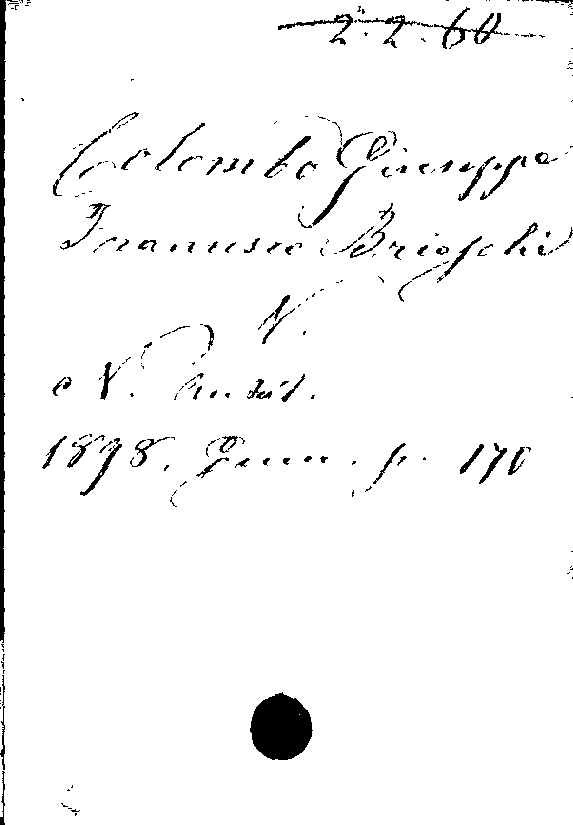 2.2.60
Colombo Giuseppe
Francesco Brioschi
N.
N. Antol.
1898. Genn. p. 170